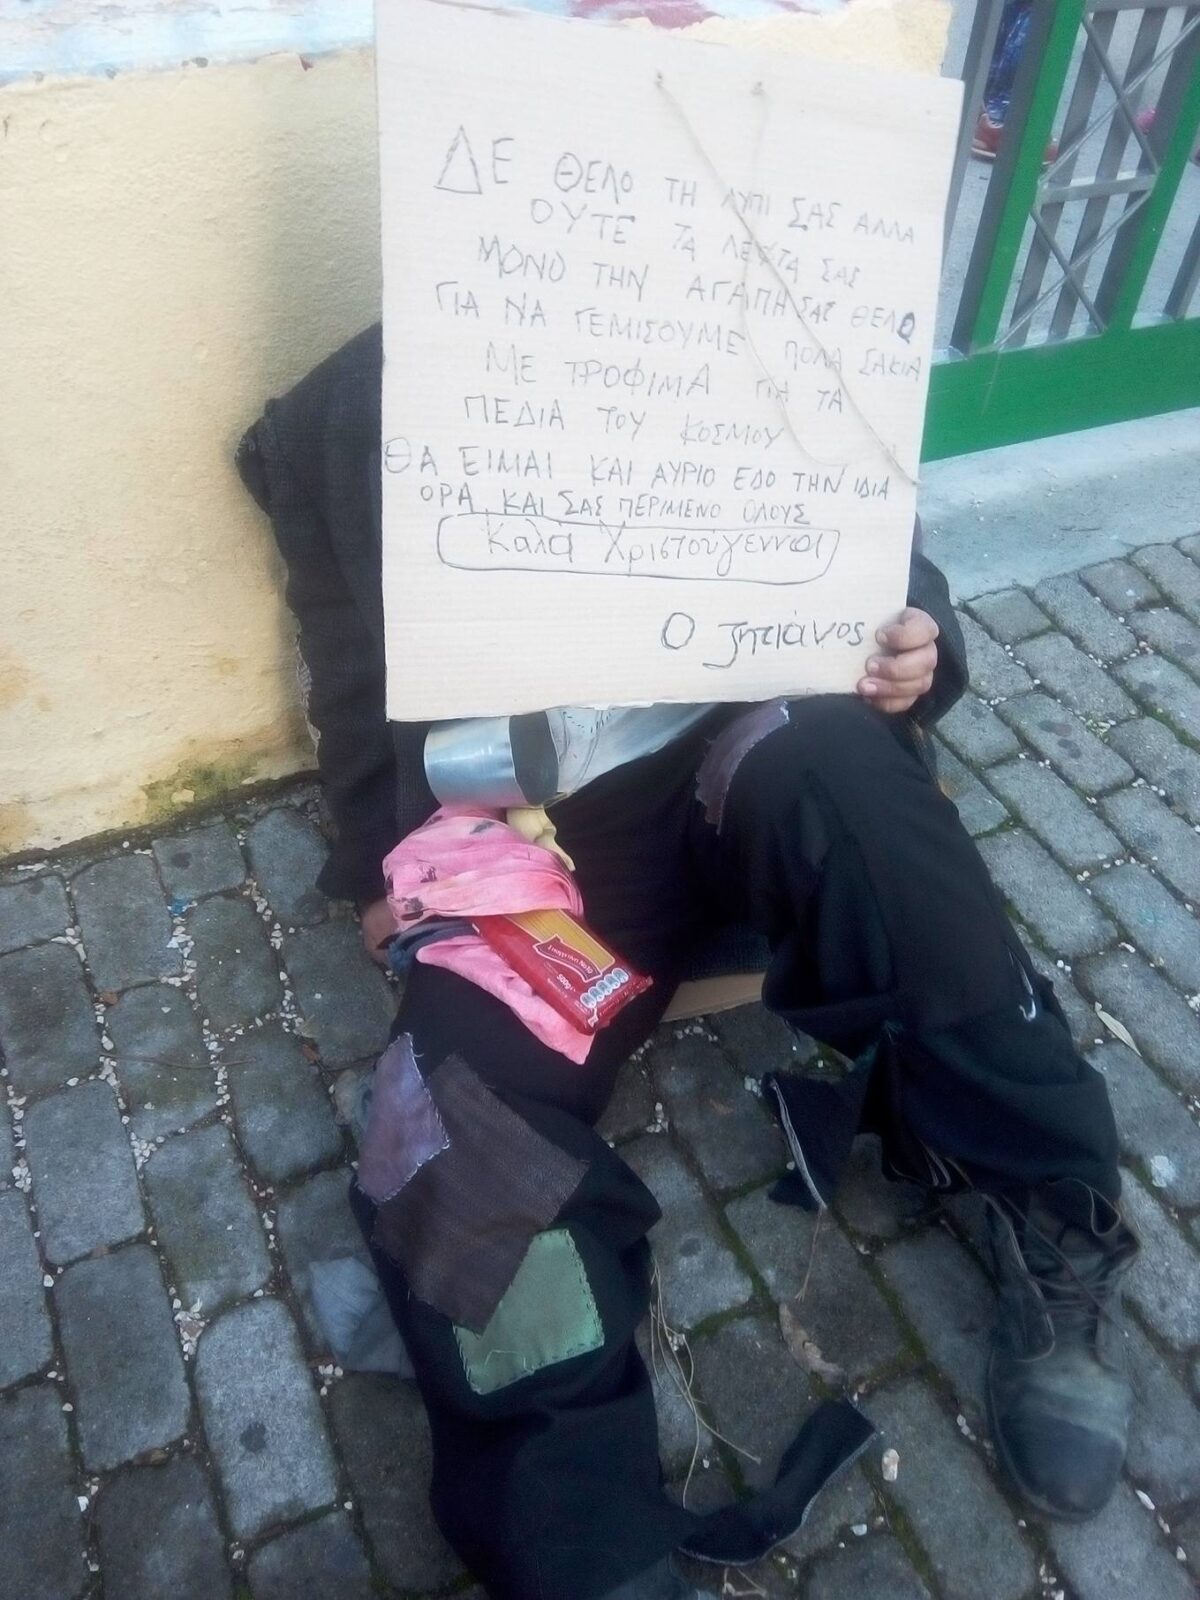 ΔΕ ΘΕΛΟ ΤΗ ΛΥΠΙ ΣΑΣ ΑΛΛΑ
ΟΥΤΕ ΤΑ ΛΕΦΤΑ ΣΑΣ
ΜΟΝΟ ΤΗΝ ΑΓΑΠΗ ΣΑΣ ΘΕΛΟ
ΓΙΑ ΝΑ ΓΕΜΙΣΟΥΜΕ ΠΟΛΑ ΣΑΚΙΑ
ΜΕ ΤΡΟΦΙΜΑ ΓΙΑ ΤΑ
ΠΕΔΙΑ ΤΟΥ ΚΟΣΜΟΥ
ΘΑ ΕΙΜΑΙ ΚΑΙ ΑΥΡΙΟ ΕΔΟ ΤΗΝ ΙΔΙΑ
ΟΡΑ ΚΑΙ ΣΑΣ ΠΕΡΙΜΕΝΟ ΟΛΟΥΣ
Καλά Χριστούγεννα
Ο ζητιάνος
500g